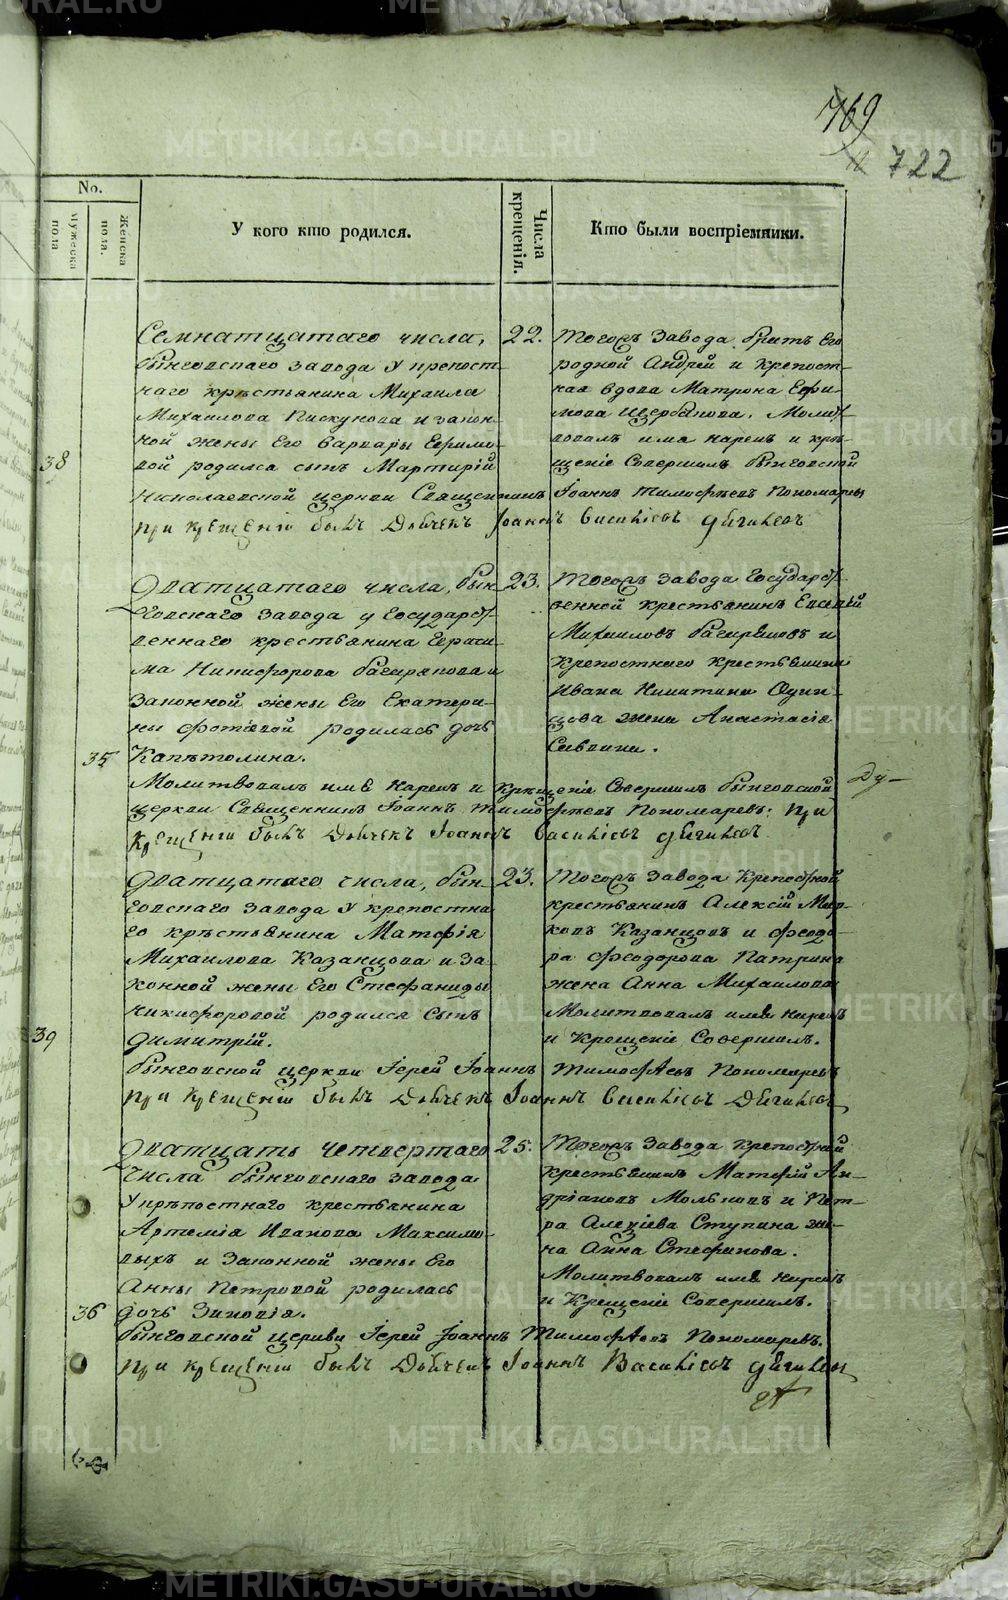 769
722
No.
мужеска пола
Женска пола.
У кого кто родился.
Числа крещенія.
Кто были воспріемники.
Семнатцатаго числа,
Быньговскаго завода у крепост-
наго крѣстьянина Михаила
Михаилова Пискунова и закон-
ной жены Его Варвары Ефимо-
вой родился сынъ Мартирій
38
22.
Тогожъ Завода братъ Его
родной Андрей и крепост-
ная вдова Матрона Ефи-
мова Щербакова. Молит-
вовалъ имя нарекъ и крѣ-
щеніе Совершилъ Быньговской
Николаевской церкви Священникъ Іоаннъ Тимофѣевъ Пономаревъ
при крещеніи былъ Дьячекъ Іоаннъ Васильевъ Дягилевъ
Дватцатаго числа, Бын-
говскаго Завода у Государст-
веннаго крестьянина Гераси-
ма Никифорова Багарякова и
Законной жены Его Екатери-
ны Фотіевой родилась дочь
35
Капѣтолина.
23.
Тогожъ завода Государст-
венной крестьянинъ Евсевій
Михаиловъ Багаряковъ и
Крепостнаго крестьянина
Ивана Никитина Один-
цова жена Анастасія
Саввина.
Молитвовалъ имя нарекъ и крещеніе Совершилъ Быньговской
церкви Священникъ Іоаннъ Тимофѣевъ Пономаревъ: при
крещеніи былъ Дьячекъ Іоаннъ Васильевъ Дягилевъ
Ду-
Дватцатаго числа, Бын-
говскаго Завода У крепостна
го крѣстьянина Матфія
Михаилова Казанцова и За
конной жены Его Стефаниды
Никифоровой родился Сынъ
39
Димитрій.
23.
Тогожъ Завода Крепостной
крестьянинъ Алексій Мар-
ковъ Казанцовъ и Феодо-
ра Феодорова Патрина
жена Анна Михаилова
Молитвовалъ имя нарекъ
и Крещеніе Совершилъ.
Быньговской церкви Іерей Іоаннъ Тимофѣевъ Пономаревъ
при крещеніи былъ Дьячекъ Іоаннъ Васильевъ Дягилевъ
Дватцать четвертаго
Числа Быньговскаго завода
У крѣпостнаго крестьянина
Артемія Иванова Максимо-
выхъ и Законной жены Его
Анны Петровой родилась
36
дочь Зиновія.
25.
Тогожъ Завода крепостной
крестьянинъ Матфій Ан-
дріановъ и Пет-
ра Алекѣева Ступина же-
на Анна Стефанова.
Молитвовалъ имя нарекъ
и Крещеніе Совершилъ.
Быньговской церкви Іерей Іоаннъ Тимофѣевъ Пономаревъ.
при крещеніи былъ Дьячекъ Іоаннъ Васильевъ Дягилевъ
METRIKI.GASO-URAL.RU